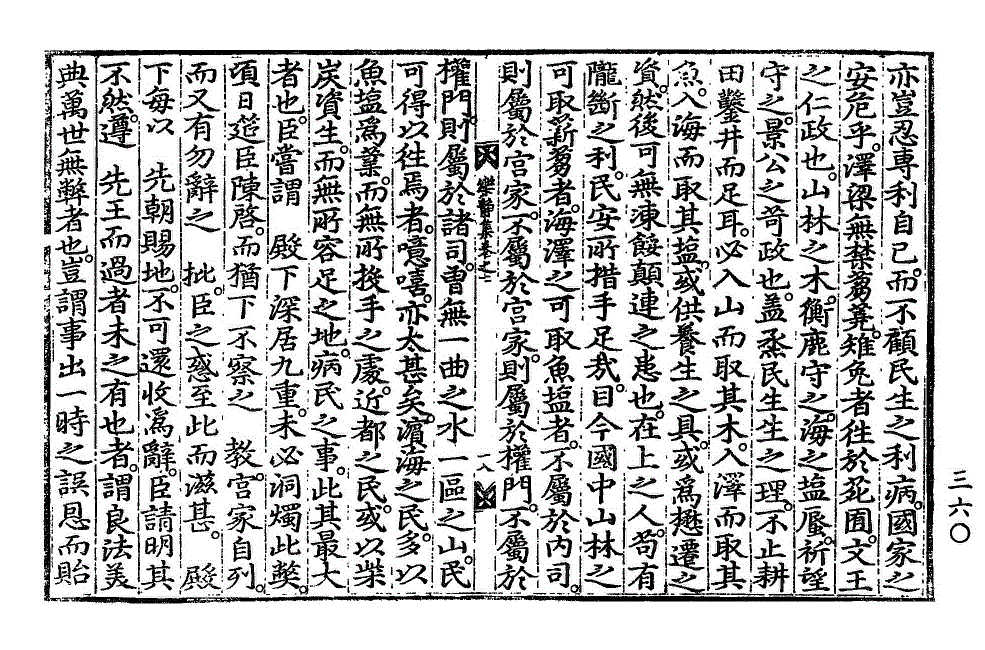 亦豈忍專利自己。而不顧民生之利病。國家之
安危乎。澤梁無禁。芻蕘雉兔者往於死囿。文王
之仁政也。山林之木。衡鹿守之。海之塩蜃。祈望
守之。景公之苛政也。盖烝民生生之理。不止耕
田鑿井而足耳。必入山而取其木。入澤而取其
魚。入海而取其塩。或供養生之具。或爲懋遷之
資。然後可無凍餒顛連之患也。在上之人。苟有
隴斷之利。民安所措手足哉。目今國中山林之
可取薪芻者。海澤之可取魚塩者。不屬於内司。
則屬於宮家。不屬於宮家。則屬於權門。不屬於
樂靜集卷之二
一八
權門。則屬於諸司。曾無一曲之水一區之山。民
可得以徃焉者。噫嘻。亦太甚矣。濱海之民。多以
魚塩爲業。而無所投手之處。近都之民。或以柴
炭資生。而無所容足之地。病民之事。此其最大
者也。臣嘗謂 殿下深居九重。未必洞燭此獘。
頃日筵臣陳啓。而猶下不察之 敎。宮家自列。
而又有勿辭之 批。臣之惑至此而滋甚。 殿
下每以 先朝賜地。不可還收爲辭。臣請明其
不然。遵 先王而過者未之有也者。謂良法美
典萬世無獘者也。豈謂事出一時之誤恩而貽
三六〇